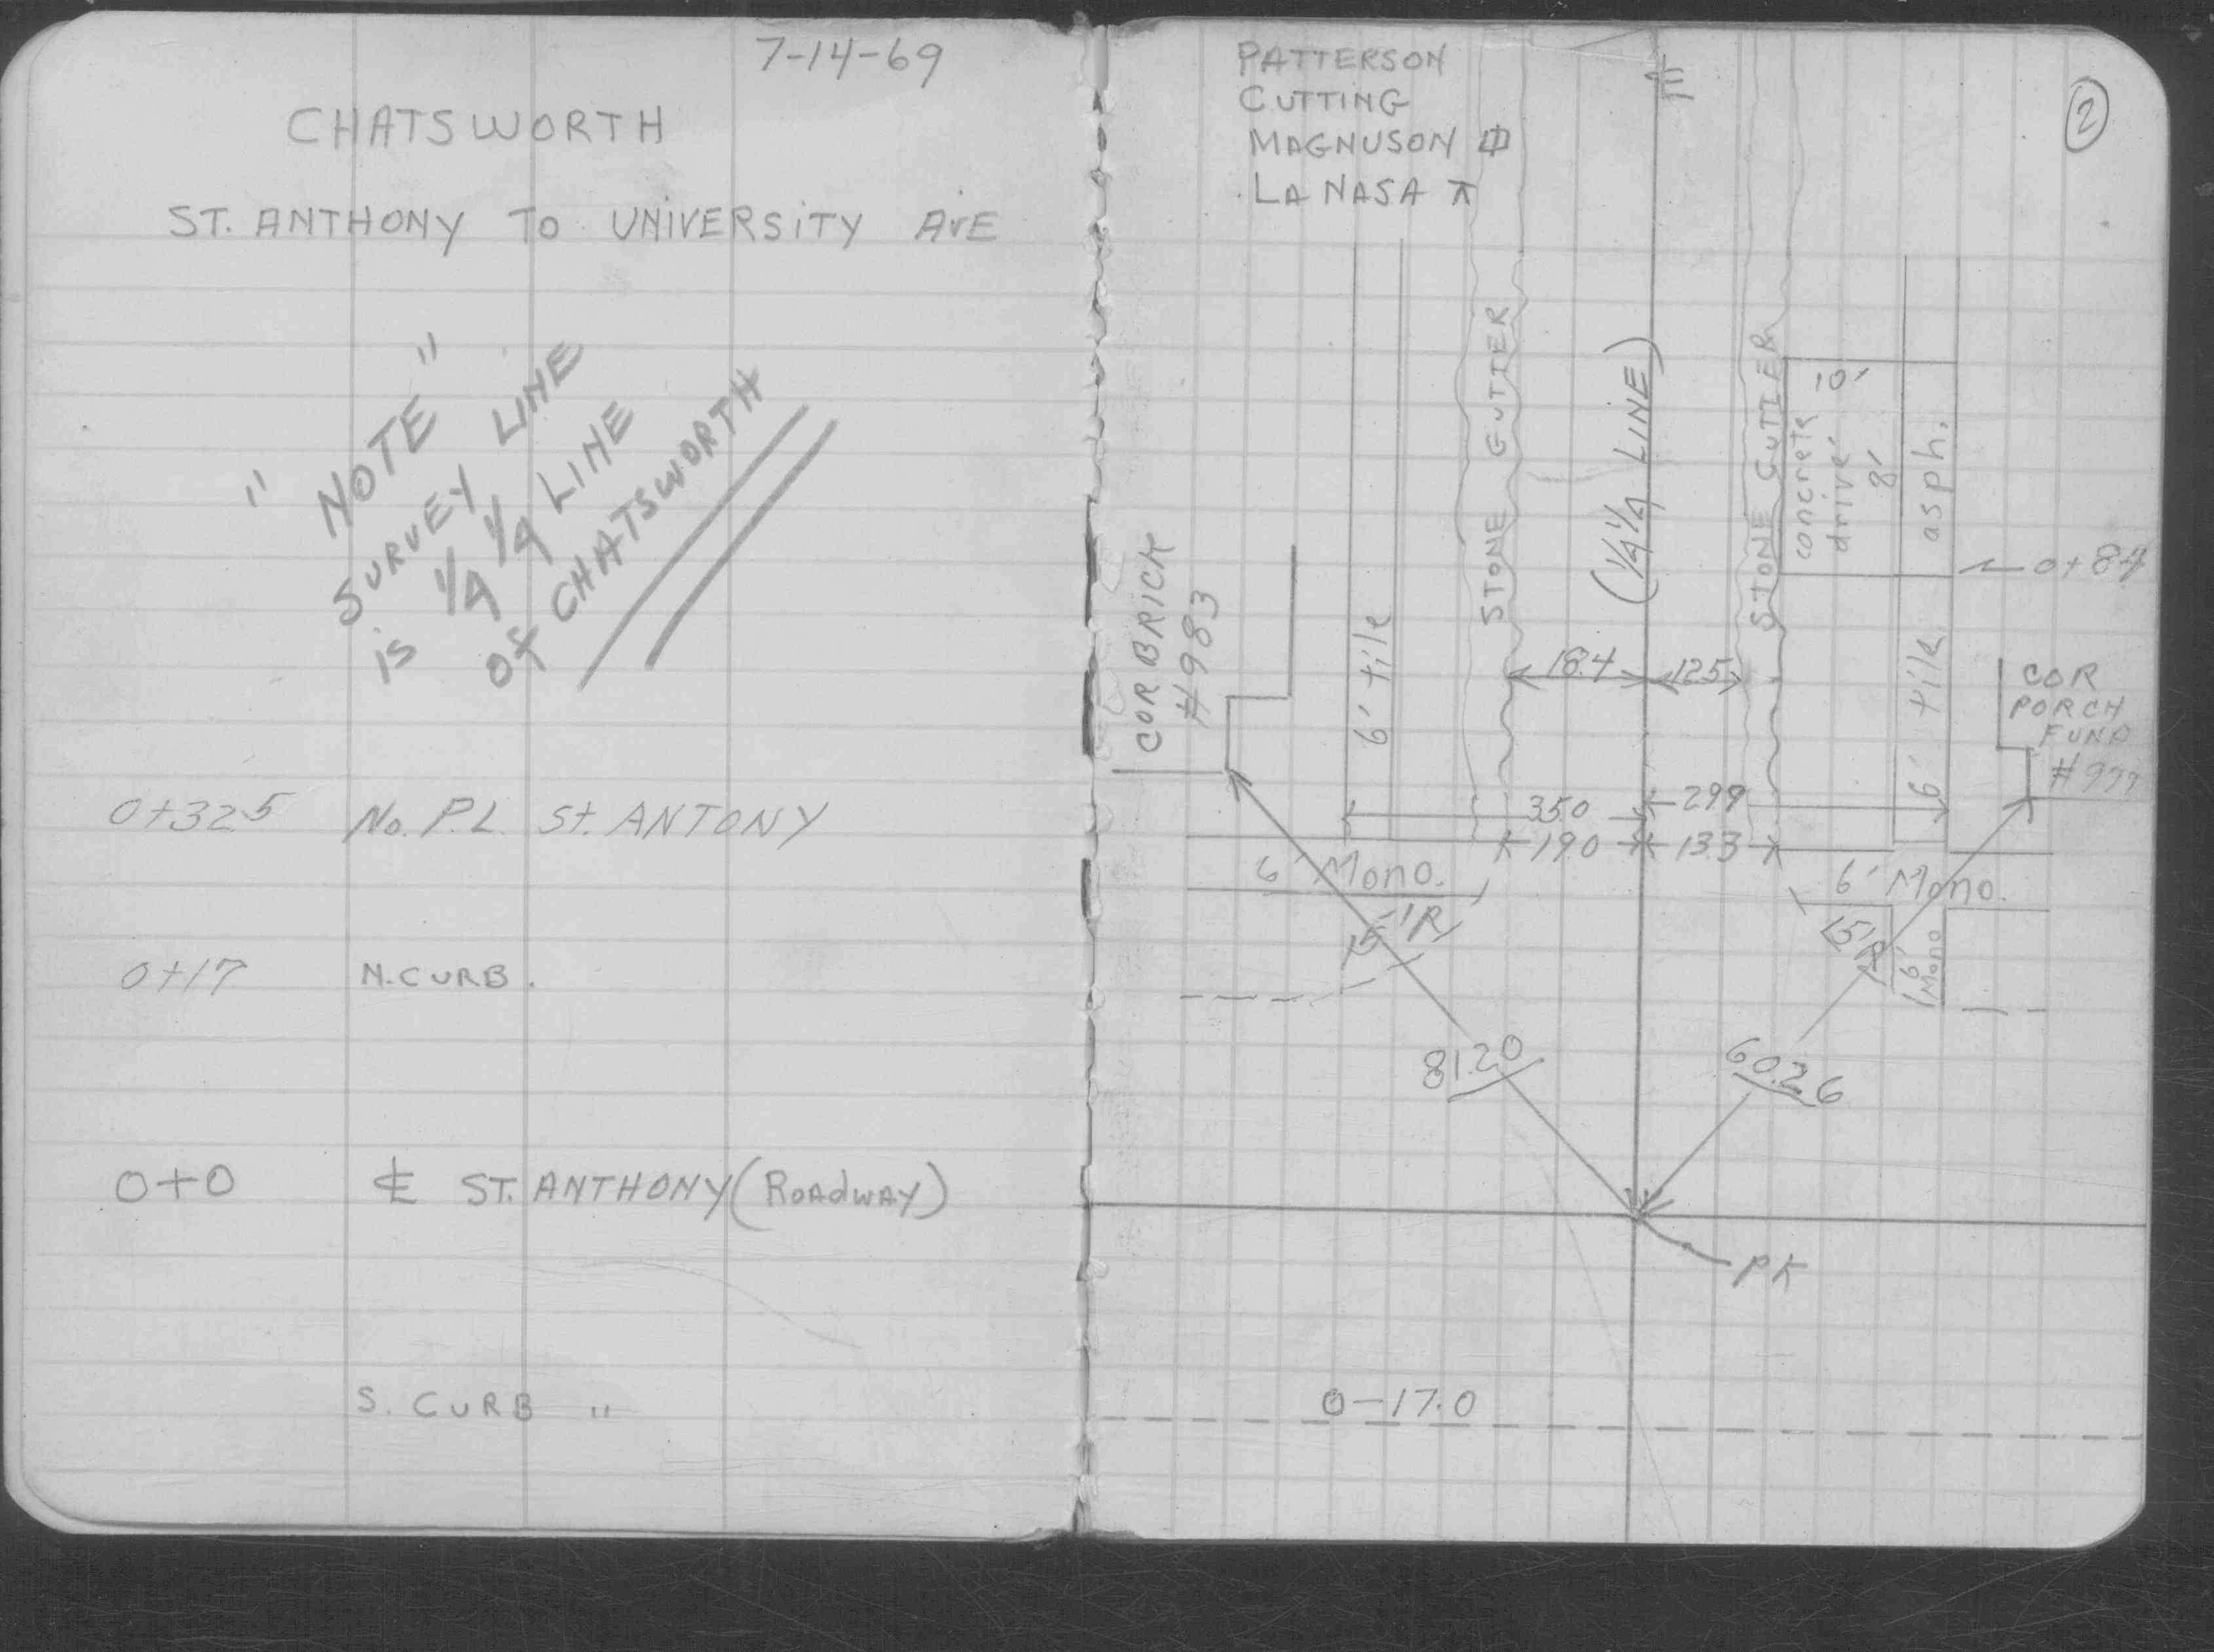 7-14-69
CHATSWORTH
ST. ANTHONY TO UNIVERSITY AVE
" NOTE "
SURVEY LINE
is 1/4 1/4 LINE
of CHATSWORTH
0+32.5 No. P.L. St. ANTONY
0+17 N. CURB.
0+0 ℄ ST. ANTHONY (ROADWAY)
S. CURB "
PATTERSON
CUTTING
MAGNUSON
LA NASA ⊼
2
COR BRICK
#983
6' tile
STONE GUTTER
(1/4 1/4 LINE)
STONE GUTTER
concrete
drive
10'
8'
asph.
0+84
18.4
12.5
6' tile
COR
PORCH
#977
35.0
29.9
19.0
13.3
6' Mono.
6' Mono.
15' R
15' R
6' Mono
81.20
60.26
PK
0-17.0